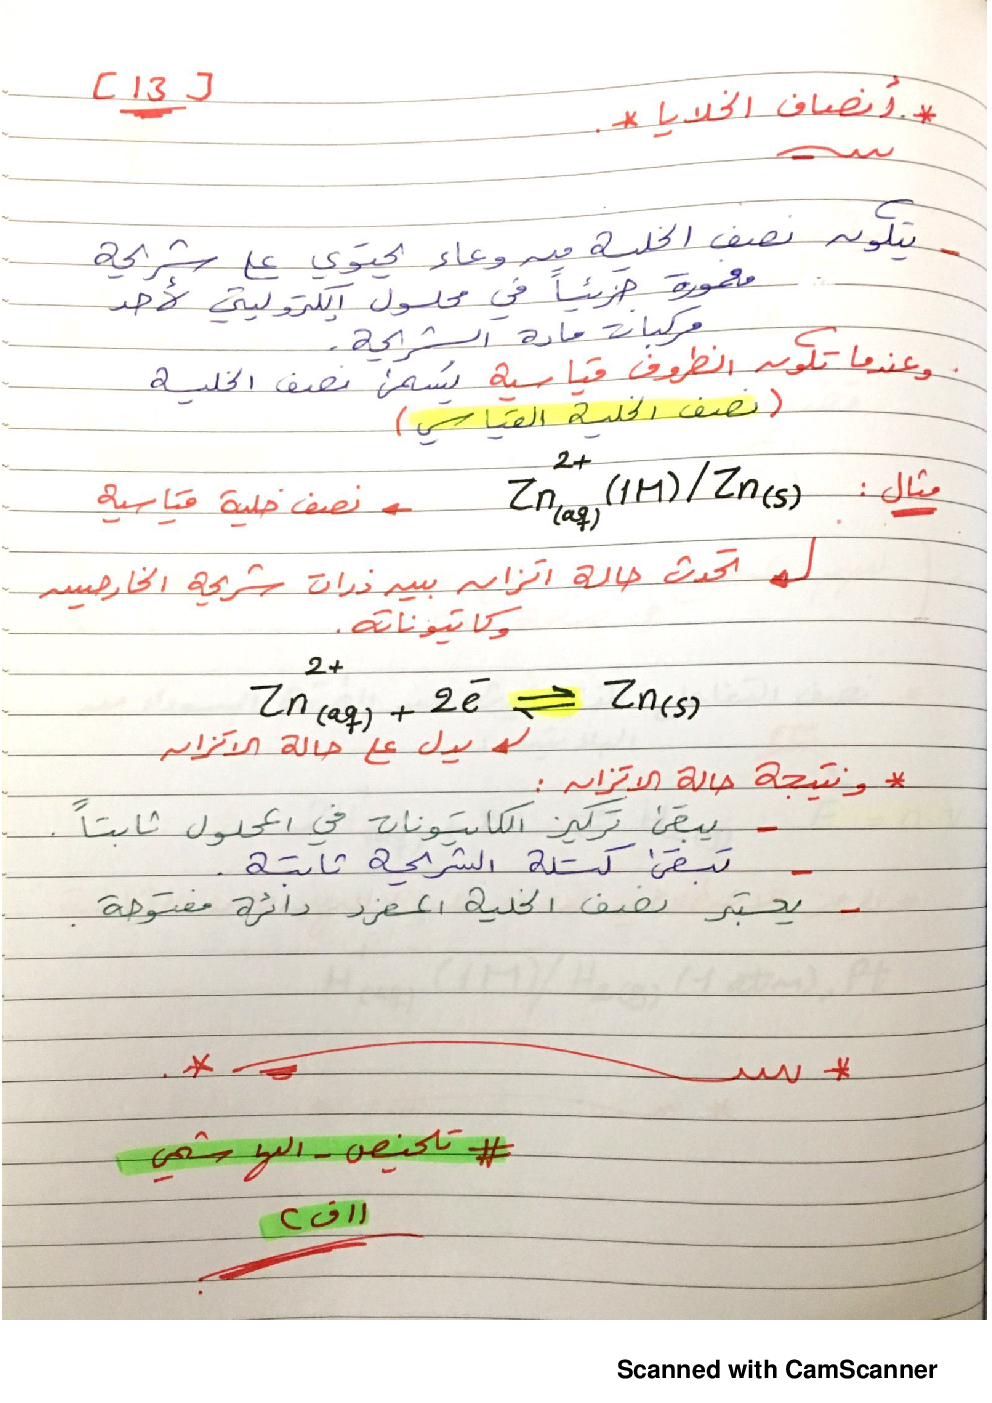 [ 13 ]
* أنصاف الخلايا *
- يتكون نصف الخلية من وعاء يحتوي على شريحة
مغمورة جزئياً في محلول إلكتروليتي لأحد
مركبات مادة الشريحة.
وعندما تكون الظروف قياسية يسمى نصف الخلية
(نصف الخلية القياسي)
مثال : Zn²⁺(aq) (1M) / Zn(s) ← نصف خلية قياسية
تحدث حالة اتزان بين ذرات شريحة الخارصين
وكاتيوناته.
Zn²⁺(aq) + 2e⁻ ⇌ Zn(s)
يدل على حالة الاتزان
* ونتيجة حالة الاتزان :
- يبقى تركيز الكاتيونات في المحلول ثابتاً.
- تبقى كتلة الشريحة ثابتة.
- يعتبر نصف الخلية المفرد دائرة مفتوحة.
* *
# تلخيص - الهاشمي
١١ ف ٢
Scanned with CamScanner